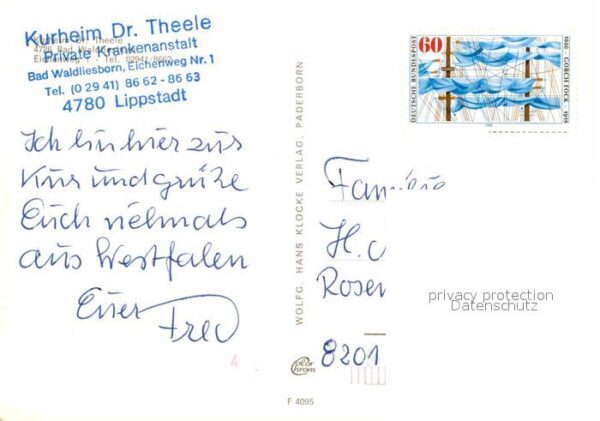 Kurheim Dr. Theele
Private Krankenanstalt
Bad Waldliesborn, Eichenweg Nr. 1
Tel. (0 29 41) 86 62 - 86 63
4780 Lippstadt
Ich bin hier zur
Kur und grüße
Euch vielmals
aus Westfalen
Euer Fred
4
WOLFG. HANS KLOCKE VERLAG, PADERBORN
Color
chrom
F 4095
60
DEUTSCHE BUNDESPOST
1880 · GORCH FOCK · 1916
Familie
H.
Rosen
8201
privacy protection
Datenschutz